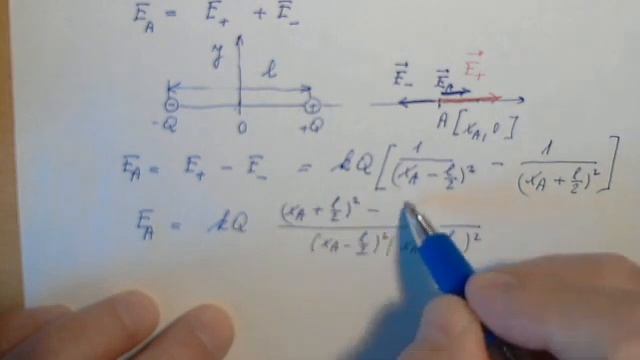 E⃗_A = E⃗₊ + E⃗₋
y l E⃗₋ E⃗_A E⃗₊
-Q 0 +Q A [x_A, 0]
E_A = E₊ - E₋ = kQ [ 1/(x_A - l/2)² - 1/(x_A + l/2)² ]
E_A = kQ (x_A + l/2)² - / (x_A - l/2)² ( )²